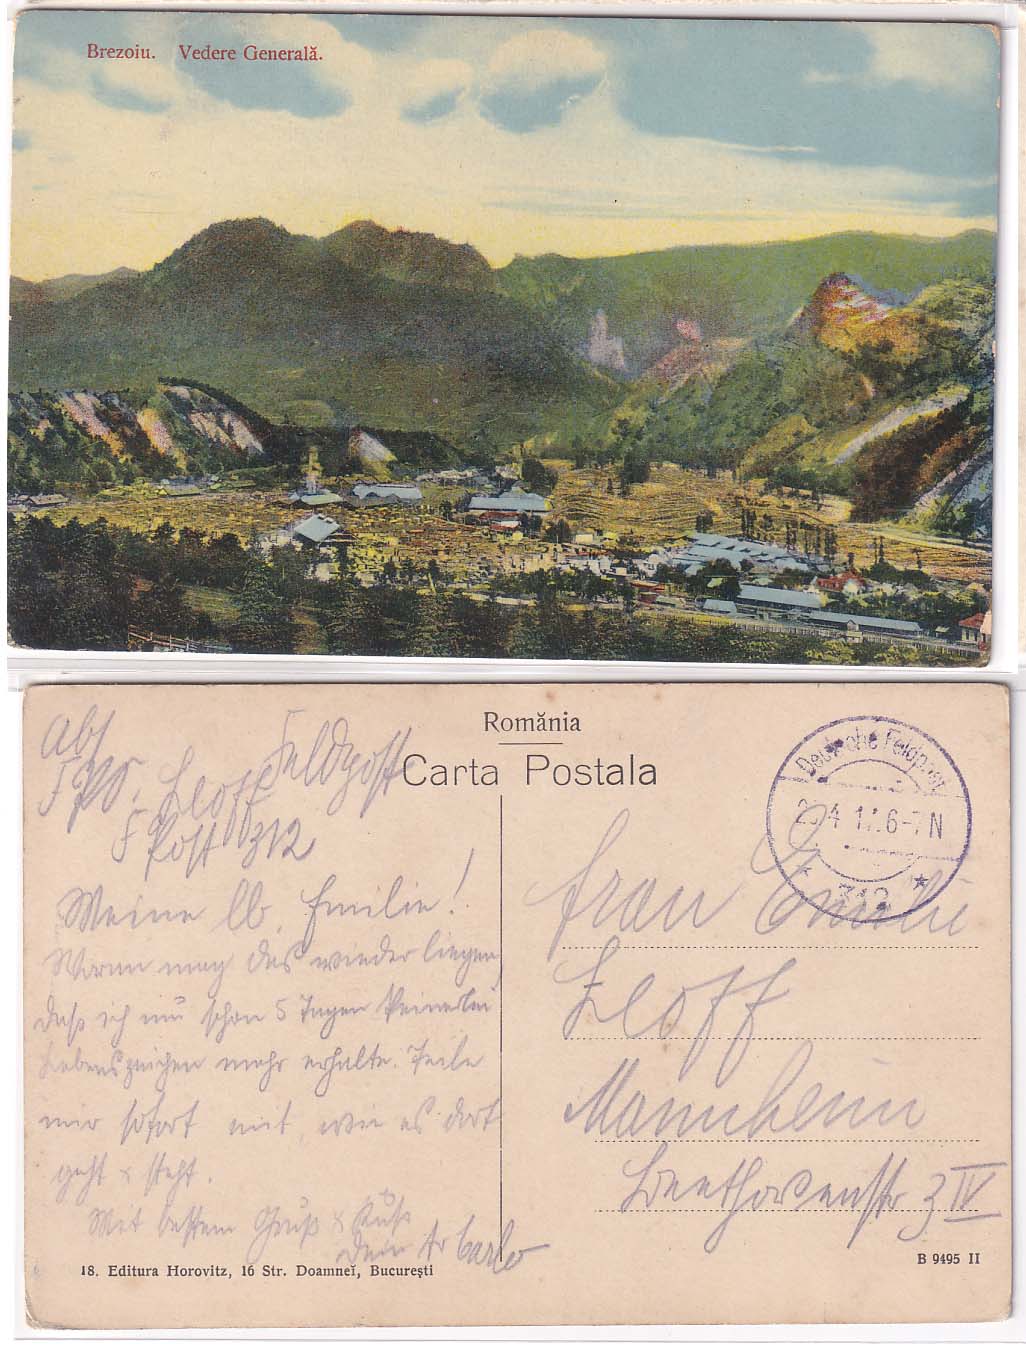 Brezoiu. Vedere Generală.
România
Carta Postala
Abs
Feldpost
FPO. Eloff
F Post 312
Deutsche Feldpost
4 17. 6-7 N
* 312 *
Meine lb. Emilie!
Woran mag das wieder liegen
daß ich nun schon 5 Tagen keinerlei
Lebenszeichen mehr erhalte. Teile
mir sofort mit, wie es dort
geht & steht.
Mit bestem Gruß & Kuß
Dein Carlo
Frau Emilie
Eloff
Mannheim
Beethovenstr 3 IV
18. Editura Horovitz, 16 Str. Doamneĭ, Bucureşti
B 9495 II